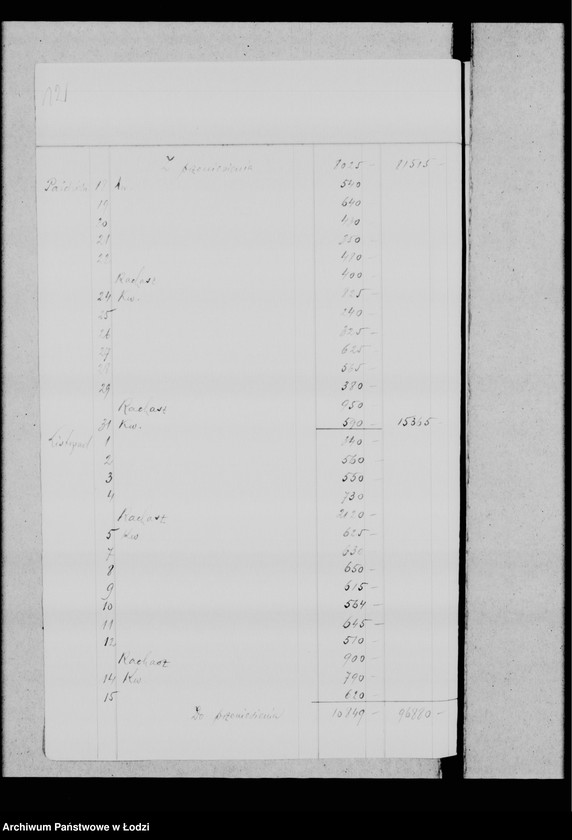 121
Z przeniesienia 8025 - 81515 -
Paździer. 18 Kw. 540
19 640 -
20 440 -
21 350 -
22 480 -
Rachast 400 -
24 Kw. 825 -
25 240 -
26 325 -
27 625 -
28 -
29 380 -
Rachast 950 -
31 Kw. 590 - 15365 -
Listopad 1 340 -
2 560 -
3 550 -
4 730 -
Rachast 2120 -
5 Kw 625 -
7 630 -
8 650 -
9 615 -
10 564 -
11 645 -
12 510 -
Rachast 900 -
14 Kw 790 -
15 620 -
Do przeniesienia 10849 - 96880 -
Archiwum Państwowe w Łodzi